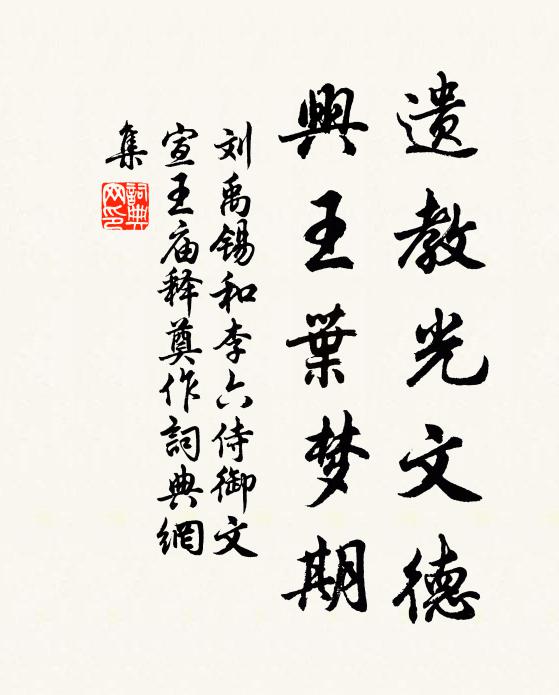 遗教光文德
興王葉梦期
刘禹锡和李六侍御文
宣王庙释奠作詞典網
集
詞典
网印